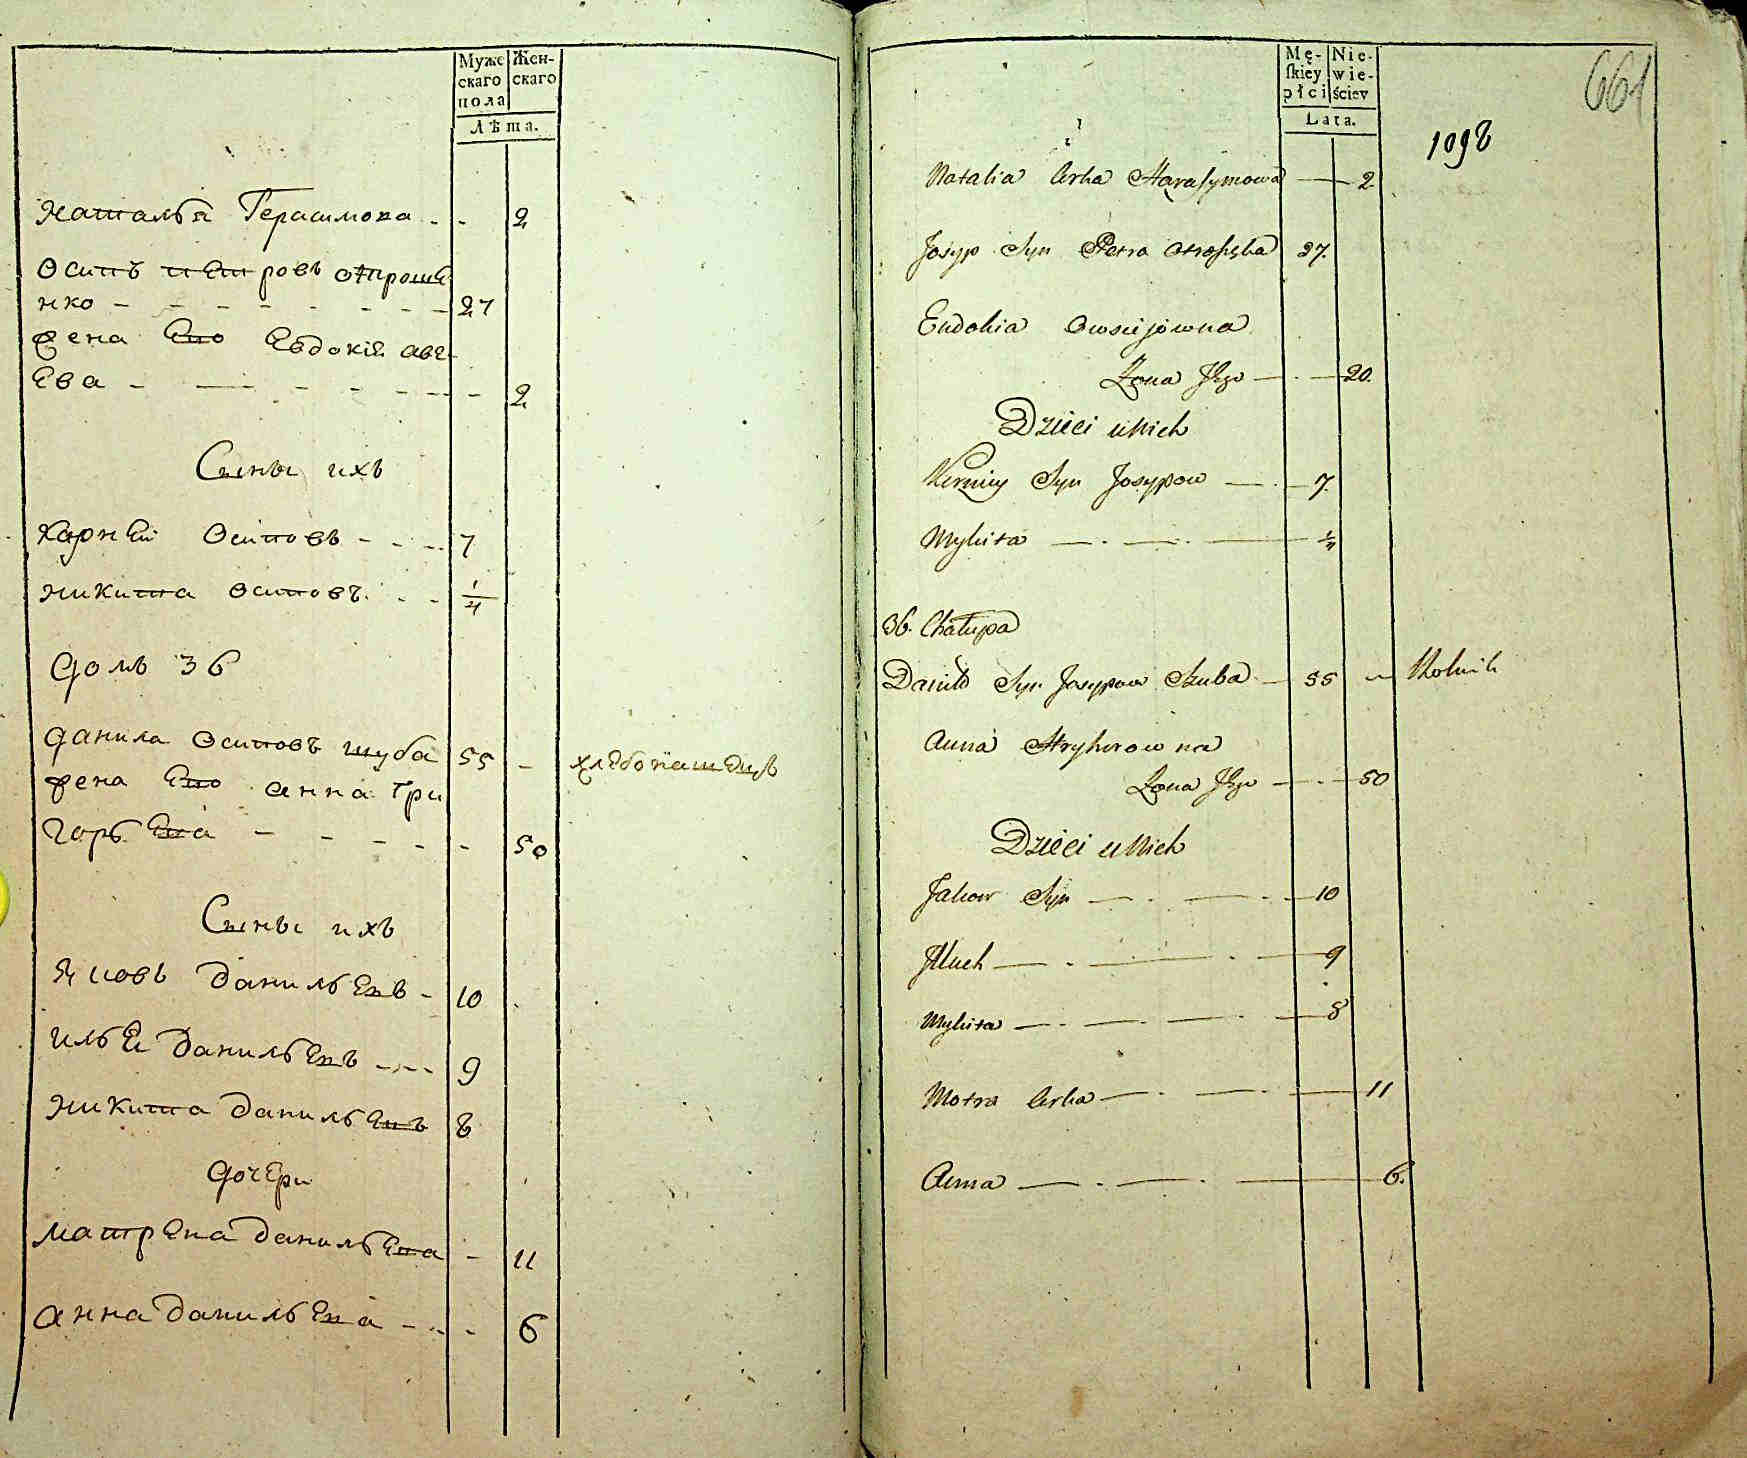 Муже Жен-
скаго скаго
пола
Лѣта.
Наталья Герасимова - - 2
Осипъ петровъ отроше
нко - - - - - - - 27
жена Его Евдокiя авс
Ева - - - - - - - - 2
Сыны ихъ
Карнѣй Осиповъ - - - 7
никита осиповъ. - - 1/4
Домъ 36
данила осиповъ шуба 55 - хлѣбопашецъ
жена Его анна гри
горьЕва - - - - - 50
Сыны ихъ
Яковъ данильЕвъ - 10
илья данильЕвъ - - - 9
никита данильЕвъ 8
дочЕри
матрЕна данильЕва - 11
анна данильЕва - - - 6
Mę- Nie-
skiey wie-
płci ściey
Lata.
661
1098
Natalia Corka Harasymowa — 2
Josyp Syn Petra 27.
Eudokia Owsiejowna
Żona Jego — . — 20.
Dzieci u Nich
Kerniey Syn Josypow — . — 7.
Mykita — . — . — 1/4
36. Chałupa
Daniło Syn Josypow Szuba — 55 — Rolnik
Anna Hryhorowna
Żona Jego — . — 50
Dzieci u Nich
Jakow Syn — . — . — 10
Illuch — . — . — 9
Mykita — . — . — 8
Motra Corka — . — . — 11
Anna — . — . — 6.